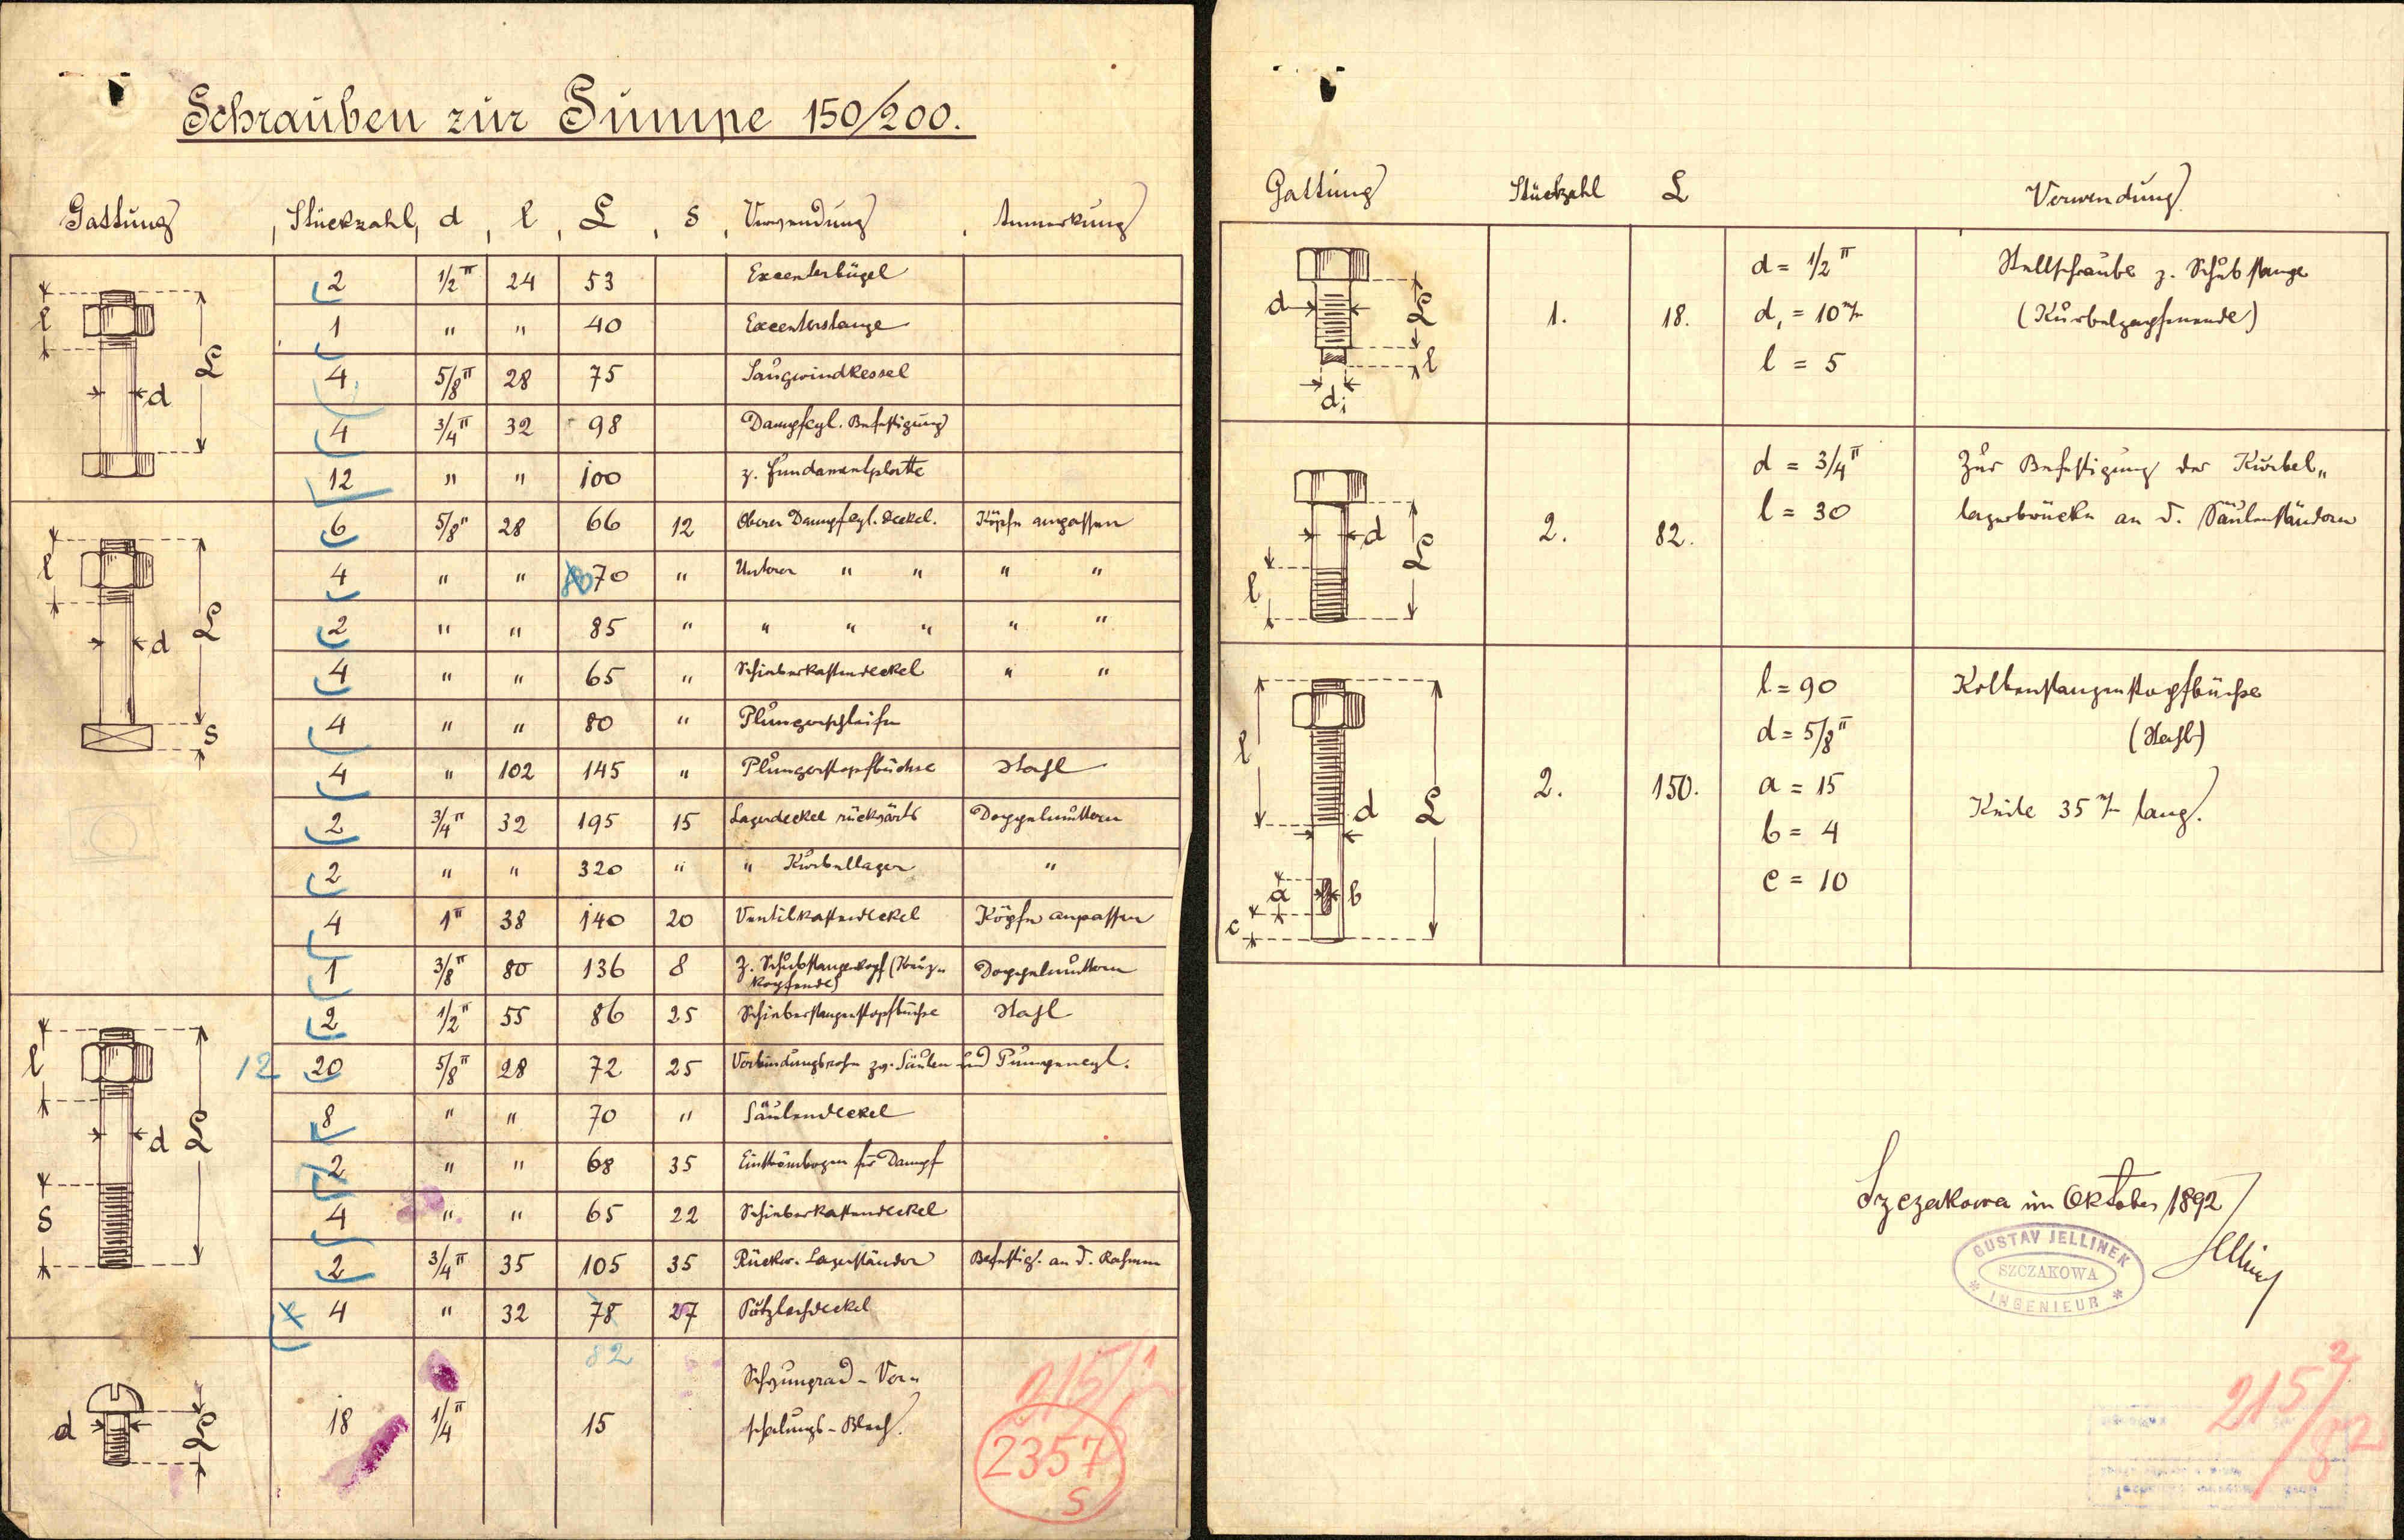 Schrauben zur Pumpe 150/200.
Gattung Stückzahl d l L s Verwendung Anmerkung
l L d
2 1/2" 24 53 Excenterbügel
1 " " 40 Excenterstange
4 5/8" 28 75 Saugwindkessel
4 3/4" 32 98 Dampfcyl. Befestigung
12 " " 100 z. Fundamentplatte
l L d s
6 5/8" 28 66 12 Oberer Dampfcyl. Deckel. Köpfe anpassen
4 " " 70 " Unterer " " " "
2 " " 85 " " " " " "
4 " " 65 " Schieberkastendeckel " "
4 " " 80 " Plungerschleife
4 " 102 145 " Plungerstopfbüchse Stahl
2 3/4" 32 195 15 Lagerdeckel rückwärts Doppelmuttern
2 " " 320 " " Kurbellager "
4 1" 38 140 20 Ventilkastendeckel Köpfe anpassen
1 3/8" 80 136 8 z. Schubstangenkopf (Kreuz-
kopfende) Doppelmuttern
l L d s
2 1/2" 55 86 25 Schieberstangenstopfbüchse Stahl
12 20 5/8" 28 72 25 Verbindungsrohr zw. Säulen und Pumpencyl.
8 " " 70 " Säulendeckel
2 " " 68 35 Einströmbogen für Dampf
4 " " 65 22 Schieberkastendeckel
2 3/4" 35 105 35 Rückw. Lagerständer Befestig. an d. Rahmen
4 " 32 78 27 Putzlochdeckel
82
d L
18 1/4" 15 Schwungrad-Ver-
schalungs-Blech.
215/1
2357
S
Gattung Stückzahl L Verwendung
d L l d1
1. 18. d = 1/2" Stellschraube z. Schubstange
d1 = 10 m/m (Kurbelzapfenende)
l = 5
d L l
2. 82. d = 3/4" Zur Befestigung der Kurbel"
l = 30 lagerbrücke an d. Säulenständern
l d L a b c
2. 150. l = 90 Kolbenstangenstopfbüchse
d = 5/8" (Stahl)
a = 15 Keile 35 m/m lang.
b = 4
c = 10
Szczakowa im Oktober 1892
Jellinek
GUSTAV JELLINEK
SZCZAKOWA
* INGENIEUR *
215/82
2